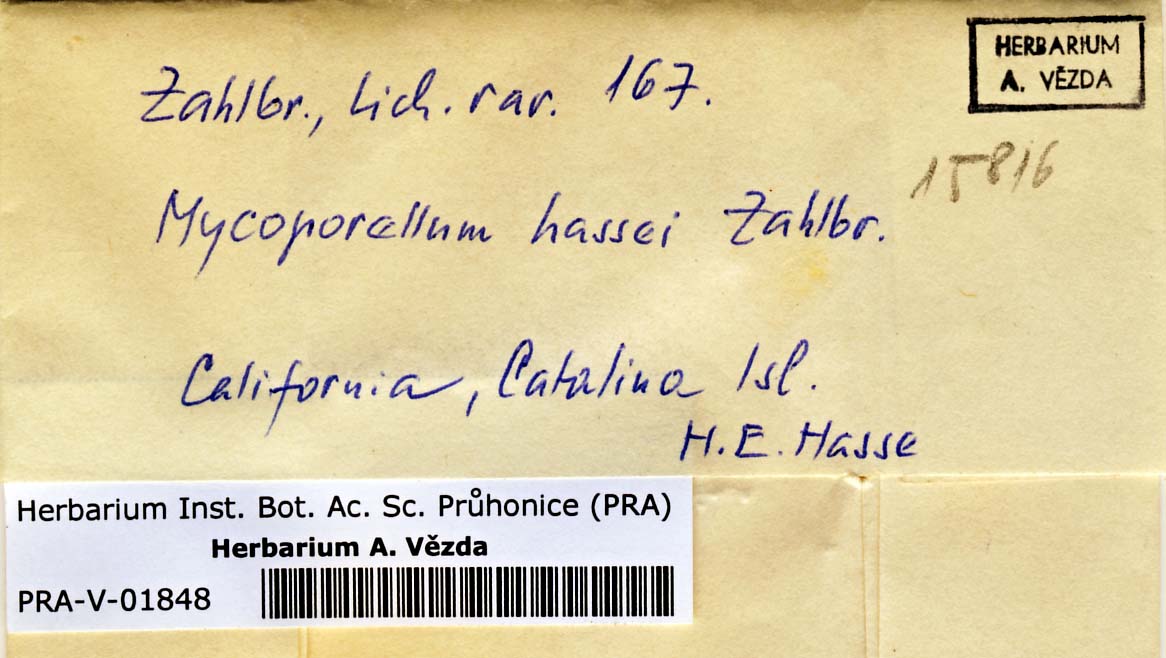 HERBARIUM
A. VĚZDA
Zahlbr., Lich. rar. 167.
15816
Mycoporellum hassei Zahlbr.
California, Catalina Isl.
H. E. Hasse
Herbarium Inst. Bot. Ac. Sc. Průhonice (PRA)
Herbarium A. Vězda
PRA-V-01848